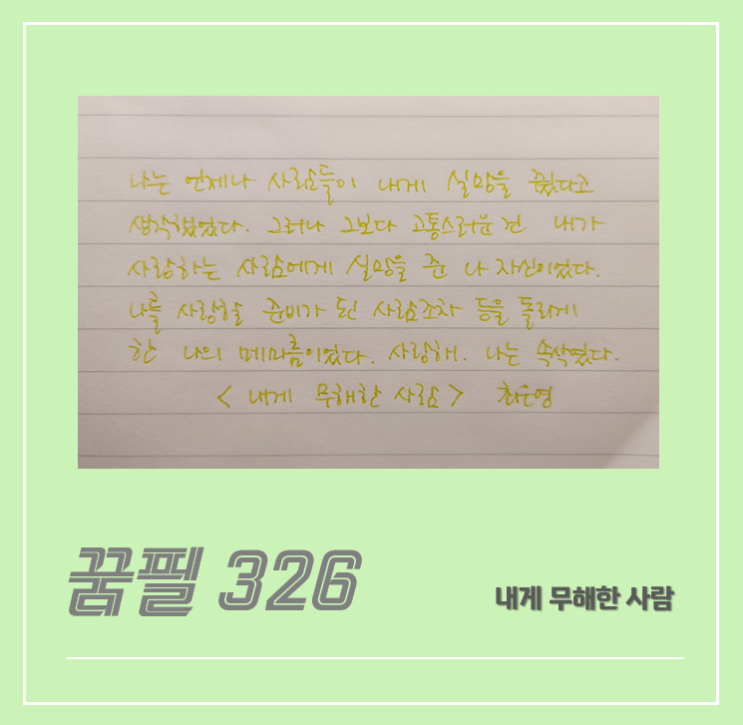 나는 언제나 사람들이 내게 실망을 줬다고
생각했었다. 그러나 그보다 고통스러운 건 내가
사랑하는 사람에게 실망을 준 나 자신이었다.
나를 사랑할 준비가 된 사람조차 등을 돌리게
한 나의 메마름이었다. 사랑해. 나는 속삭였다.
< 내게 무해한 사람 > 최은영
꿈필 326
내게 무해한 사람